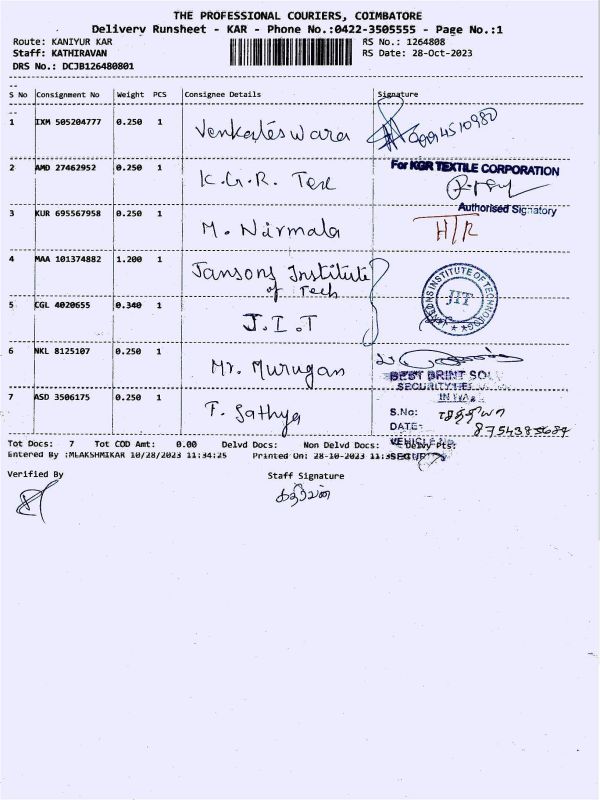 THE PROFESSIONAL COURIERS, COIMBATORE
Delivery Runsheet - KAR - Phone No.:0422-3505555 - Page No.:1
Route: KANIYUR KAR RS No.: 1264808
Staff: KATHIRAVAN RS Date: 28-Oct-2023
DRS No.: DCJB126480801
S No Consignment No Weight PCS Consignee Details Signature
1 IXM 505204777 0.250 1 Venkateswara
2 AMD 27462952 0.250 1 K.G.R. Tex For KGR TEXTILE CORPORATION
Authorised Signatory
3 KUR 695567958 0.250 1 M. Nirmala H/R
4 MAA 101374882 1.200 1 Jansons Institute of Tech
JIT
5 CGL 4020655 0.340 1 J.I.T
6 NKL 8125107 0.250 1 Mr. Murugan
BEST PRINT
7 ASD 3506175 0.250 1 T. Sathya S.No:
DATE:
Tot Docs: 7 Tot COD Amt: 0.00 Delvd Docs: Non Delvd Docs: Delvy Pts:
Entered By :MLAKSHMIKAR 10/28/2023 11:34:25 Printed On: 28-10-2023
Verified By Staff Signature
கதிரவன்